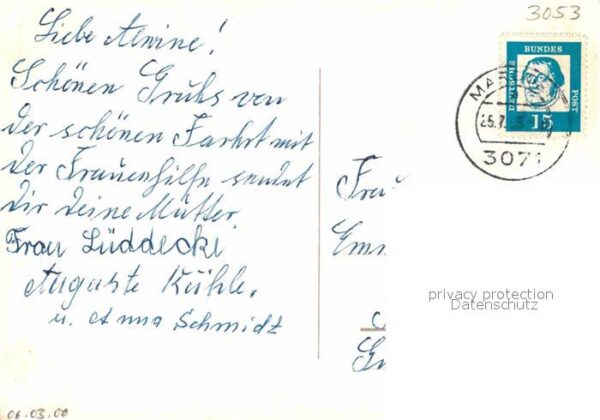 3053
Liebe Alwine!
Schönen Gruhs von
der schönen Fahrt mit
der Frauenhilfe sendet
dir deine Mutter.
Frau Lüddecki
Auguste Kühle.
u. Anna Schmidt
Frau
Emm
DEUTSCHE
BUNDES
POST
15
MA
3071
privacy protection
Datenschutz
06.03.00